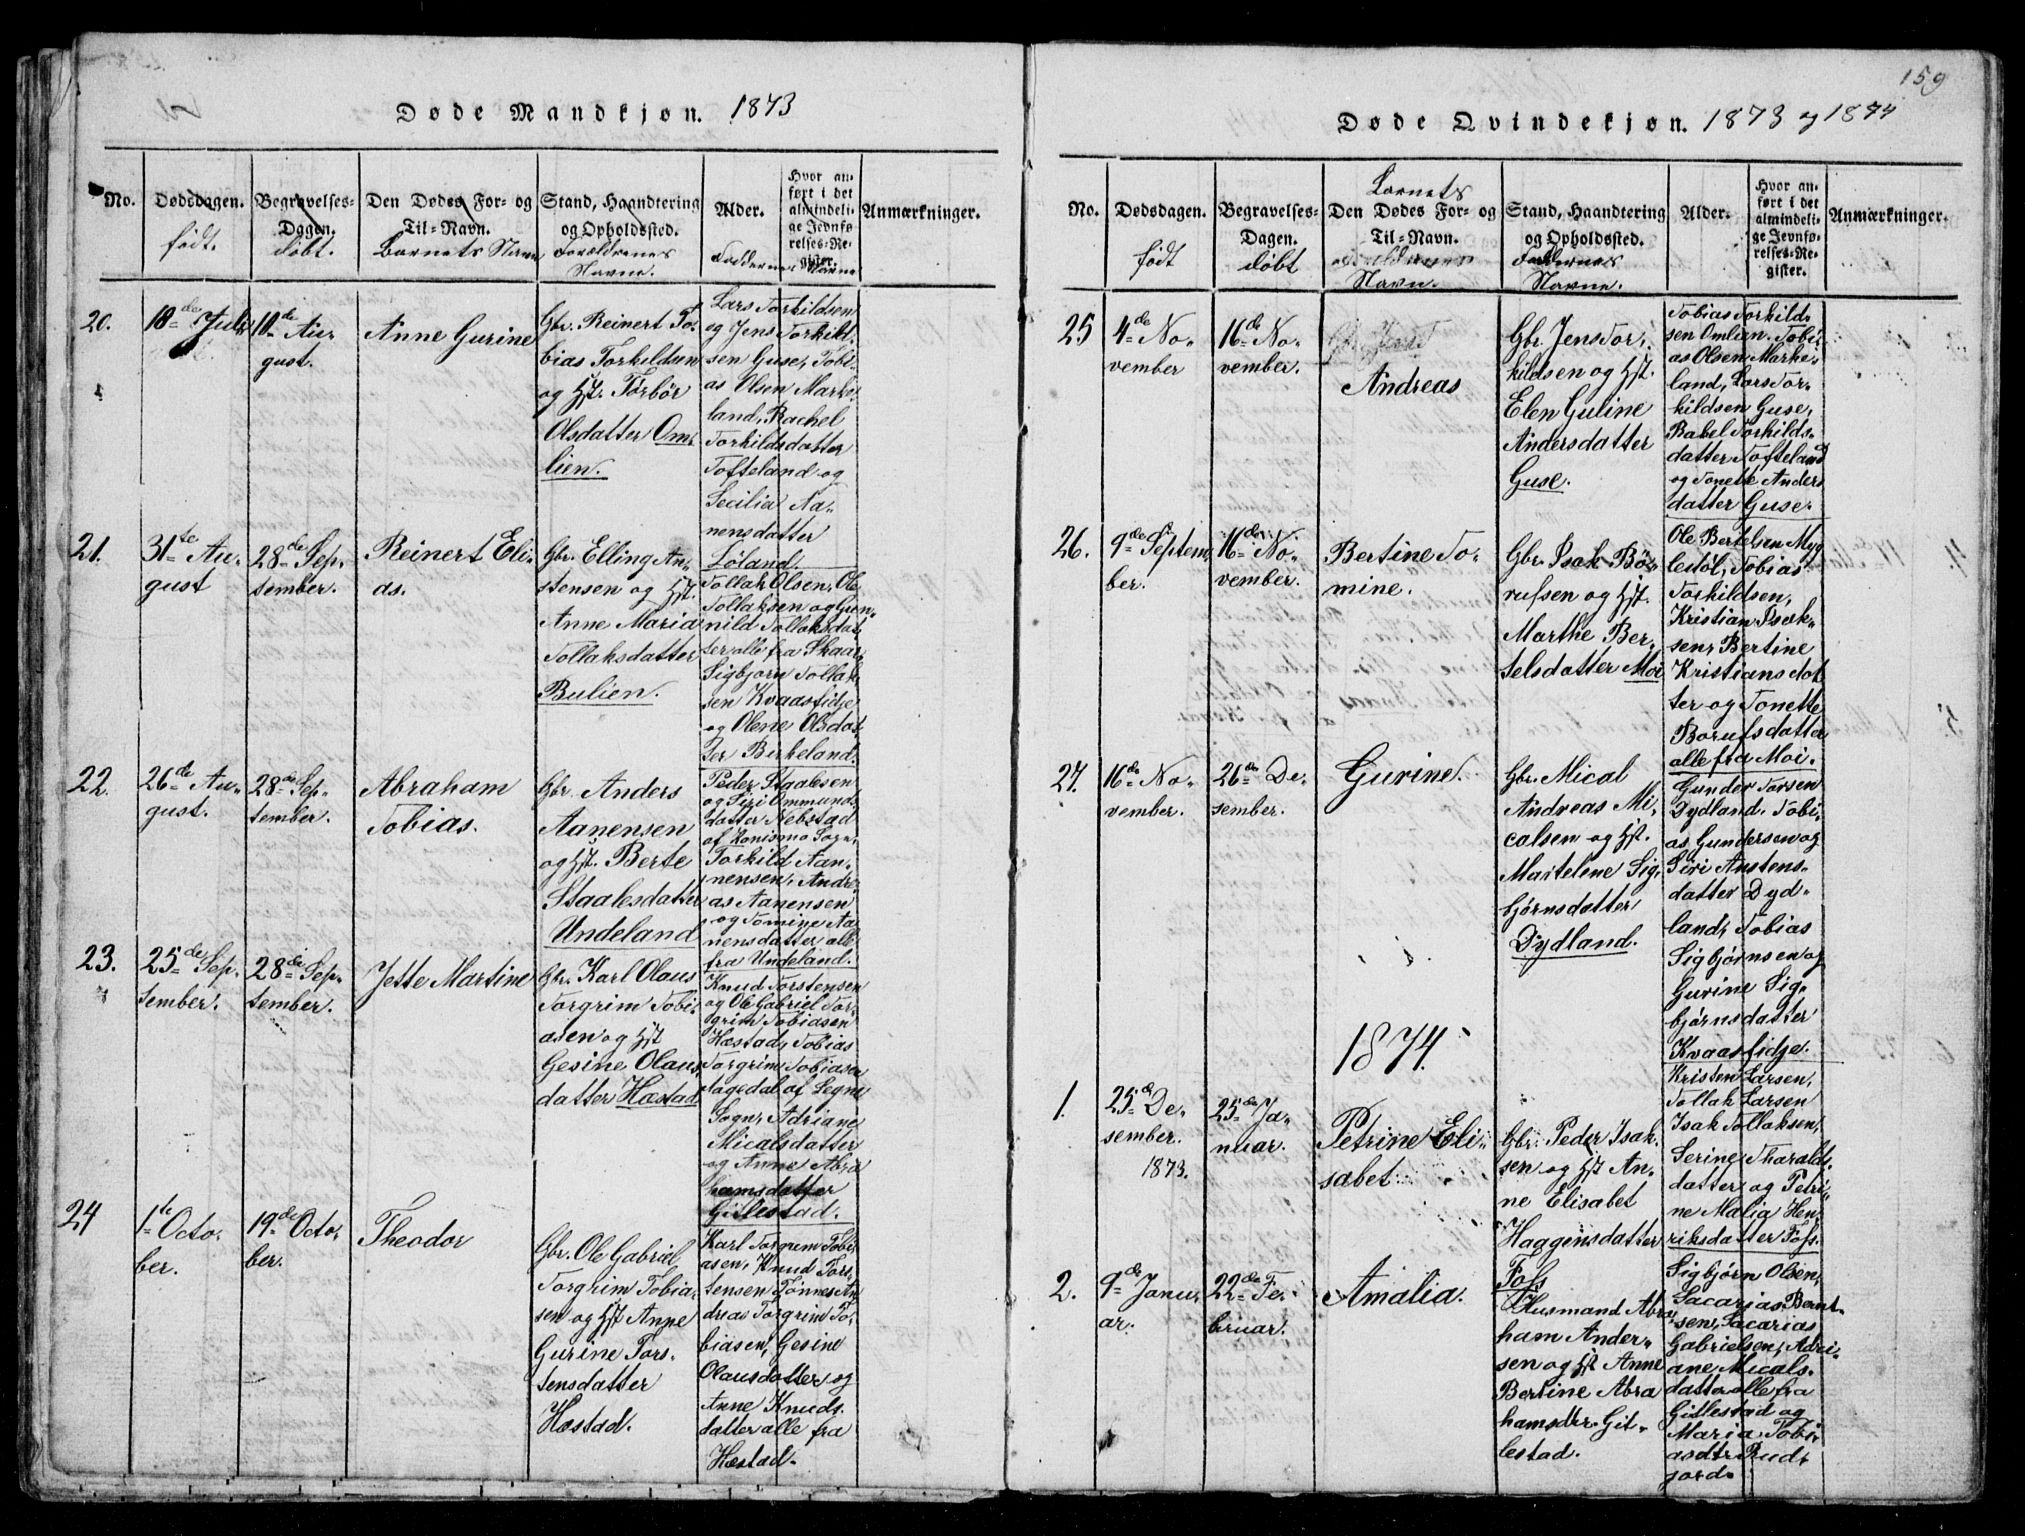 159
Døde Mandkjøn. 1873
No.
Dødsdagen.
født.
Begravelses-
Dagen.
døbt.
Den Dødes For- og
Til-Navn.
Barnets Navn
Stand, Haandtering
og Opholdssted.
Forældrenes
Navne.
Alder.
Faddernes Navne
Hvor an-
ført i det
almindeli-
ge Jevnfø-
relses-Re-
gister.
Anmærkninger.
20.
18de Juli
10de Au-
gust.
Anne Gurine
Gbr. Reinert To-
bias Torkildsen
og Hst. Torbør
Olsdatter Om-
lien.
Lars Torkildsen
og Jens Torkild-
sen Guse, Tobi-
as Olsen Marke-
land, Rachel
Torkildsdatter
Tofteland og
Secilia Aa-
nensdatter
Løland.
21.
31te Au-
gust
28de Sep-
tember.
Reinert Eli-
as.
Gbr. Elling An-
stensen og Hst.
Anne Maria
Tollaksdatter
Bulien.
Tollak Olsen, Ole
Tollaksen og Gun-
nild Tollaksdat-
ter alle fra Skaar,
Sigbjørn Tollak-
sen Kvaasfidje
og Olene Olsdat-
ter Birkeland.
22.
26de Au-
gust.
28de Sep-
tember.
Abraham
Tobias.
Gbr. Anders
Aanensen
og Hst. Berte
Staalesdatter
Undeland
Peder Staalesen
og Siri Ommunds
datter Nebstad
af Sogn,
Torkild Aan-
nensen, Andre-
as Aanensen
og Tomine Aa-
nensdatter alle
fra Undeland.
23.
25de Sep-
tember.
28de Sep-
tember.
Jette Martine
Gbr. Karl Olaus
Torgrim Tobi-
asen og Hst
Gesine Olaus-
datter Hæstad
Knud Torstensen
og Ole Gabriel Tor-
grim Tobiasen
Hæstad, Tobias
Torgrim Tobiasen
af Segne
Sogn, Adriane
Micalsdatter
og Anne Abra
hamsdatter
Gitlestad.
24
1te Octo-
ber.
19de Octo-
ber.
Theodor
Gbr. Ole Gabriel
Torgrim Tobia-
sen og Hst Anne
Gurine Tors-
tensdatter
Hæstad.
Karl Torgrim Tobi-
asen, Knud Tors-
tensen Tønnes An
dreas Torgrim To-
biasen, Gesine
Olausdatter og
Anne Knuds-
datter alle fra
Hæstad.
Døde Qvindekjøn. 1873 og 1874
No.
Dødsdagen.
født
Begravelses-
Dagen.
døbt
Barnets
Den Dødes For- og
Til-Navn.
Navn.
Stand, Haandtering
og Opholdssted.
Navne.
Alder.
Hvor an-
ført i det
almindeli-
ge Jevnfø-
relses-Re-
gister.
Anmærkninger.
25
4de No-
vember
16de No-
vember.
Andreas
Gbr. Jens Tor-
kildsen og Hst.
Elen Guline
Andersdatter
Guse.
Tobias Torkild-
sen Omlien. Tobi-
as Olsen Marke-
land, Lars Tor-
kildsen Guse,
Rakel Torkilds-
datter Tofteland
og Tonette Anders
datter Guse.
26.
9de Septem-
ber.
16de No-
vember.
Bertine To-
mine.
Gbr. Isak Bø-
rufsen og Hst.
Marthe Ber-
telsdatter Moi
Ole Bertelsen Myg-
lestøl, Tobias
Torkildsen,
Kristian Isak-
sen, Bertine
Kristiansdat
ter og Tonette
Børufsdatter
alle fra Moi.
27.
16de No-
vember.
26de De-
sember.
Gurine.
Gbr. Mical
Andreas Mi-
calsen og Hst.
Martelene Sig-
bjørnsdatter
Dydland.
Gunder Torsen
Dydland. Tobi-
as Gundersen og
Siri Anstens-
datter Dyd-
land, Tobias
Sigbjørnsen og
Gurine Sig-
bjørnsdatter
Kvaasfidje.
1874.
1.
25de De-
sember.
1873.
25de Ja-
nuar.
Petrine Eli-
sabet
Gbr. Peder Isak-
sen og Hst An-
ne Elisabet
Haagensdatter
Foss
Kristen Larsen,
Tollak Larsen
Isak Tollaksen,
Serine Tharalds-
datter og Petri-
ne Malia Hen-
riksdatter Foss.
2.
9de Janu-
ar.
22de Fe-
bruar.
Amalia.
Husmand Abra-
ham Ander-
sen og Hst Anne
Bertine Abra
hamsdtr. Git-
lestad.
Sigbjørn Olsen,
Sacarias Bernt-
sen, Sacarias
Gabrielsen, Adri-
ane Micals-
datter alle fra
Gitlestad og
Maria Tobi-
asdtr Rud-
jord.